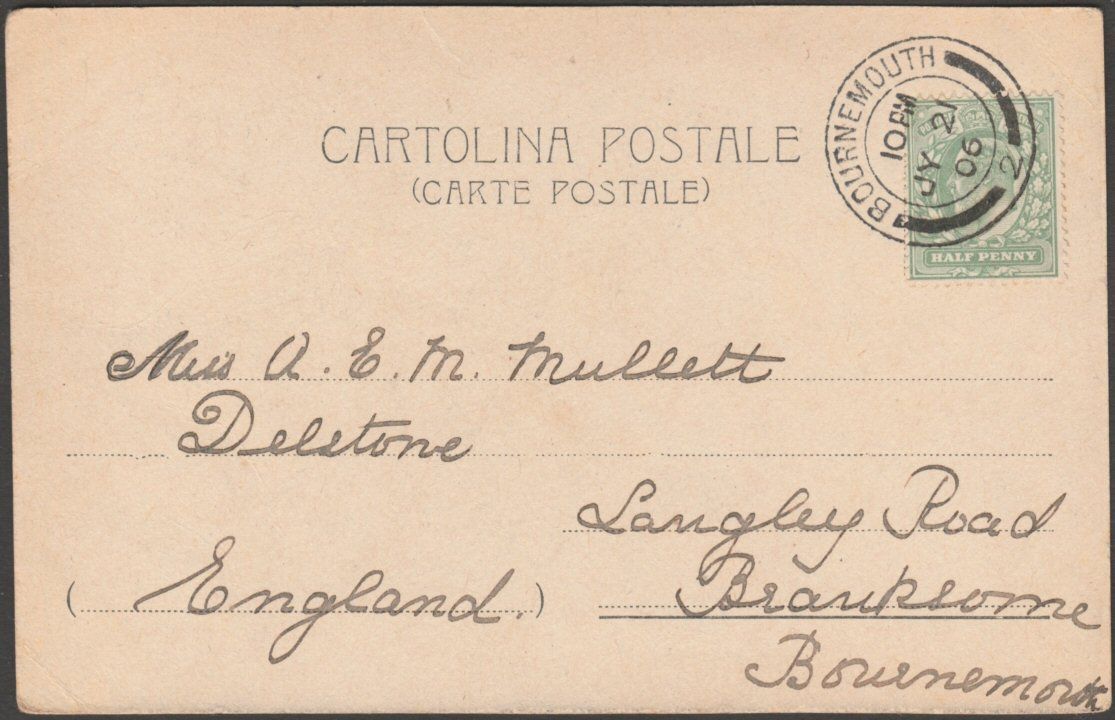 CARTOLINA POSTALE
(CARTE POSTALE)
BOURNEMOUTH
10 PM
JY 21
06
2
HALF PENNY
Miss A. E. M. Mullett
Delstone
Langley Road
(England.)
Branksome
Bournemouth